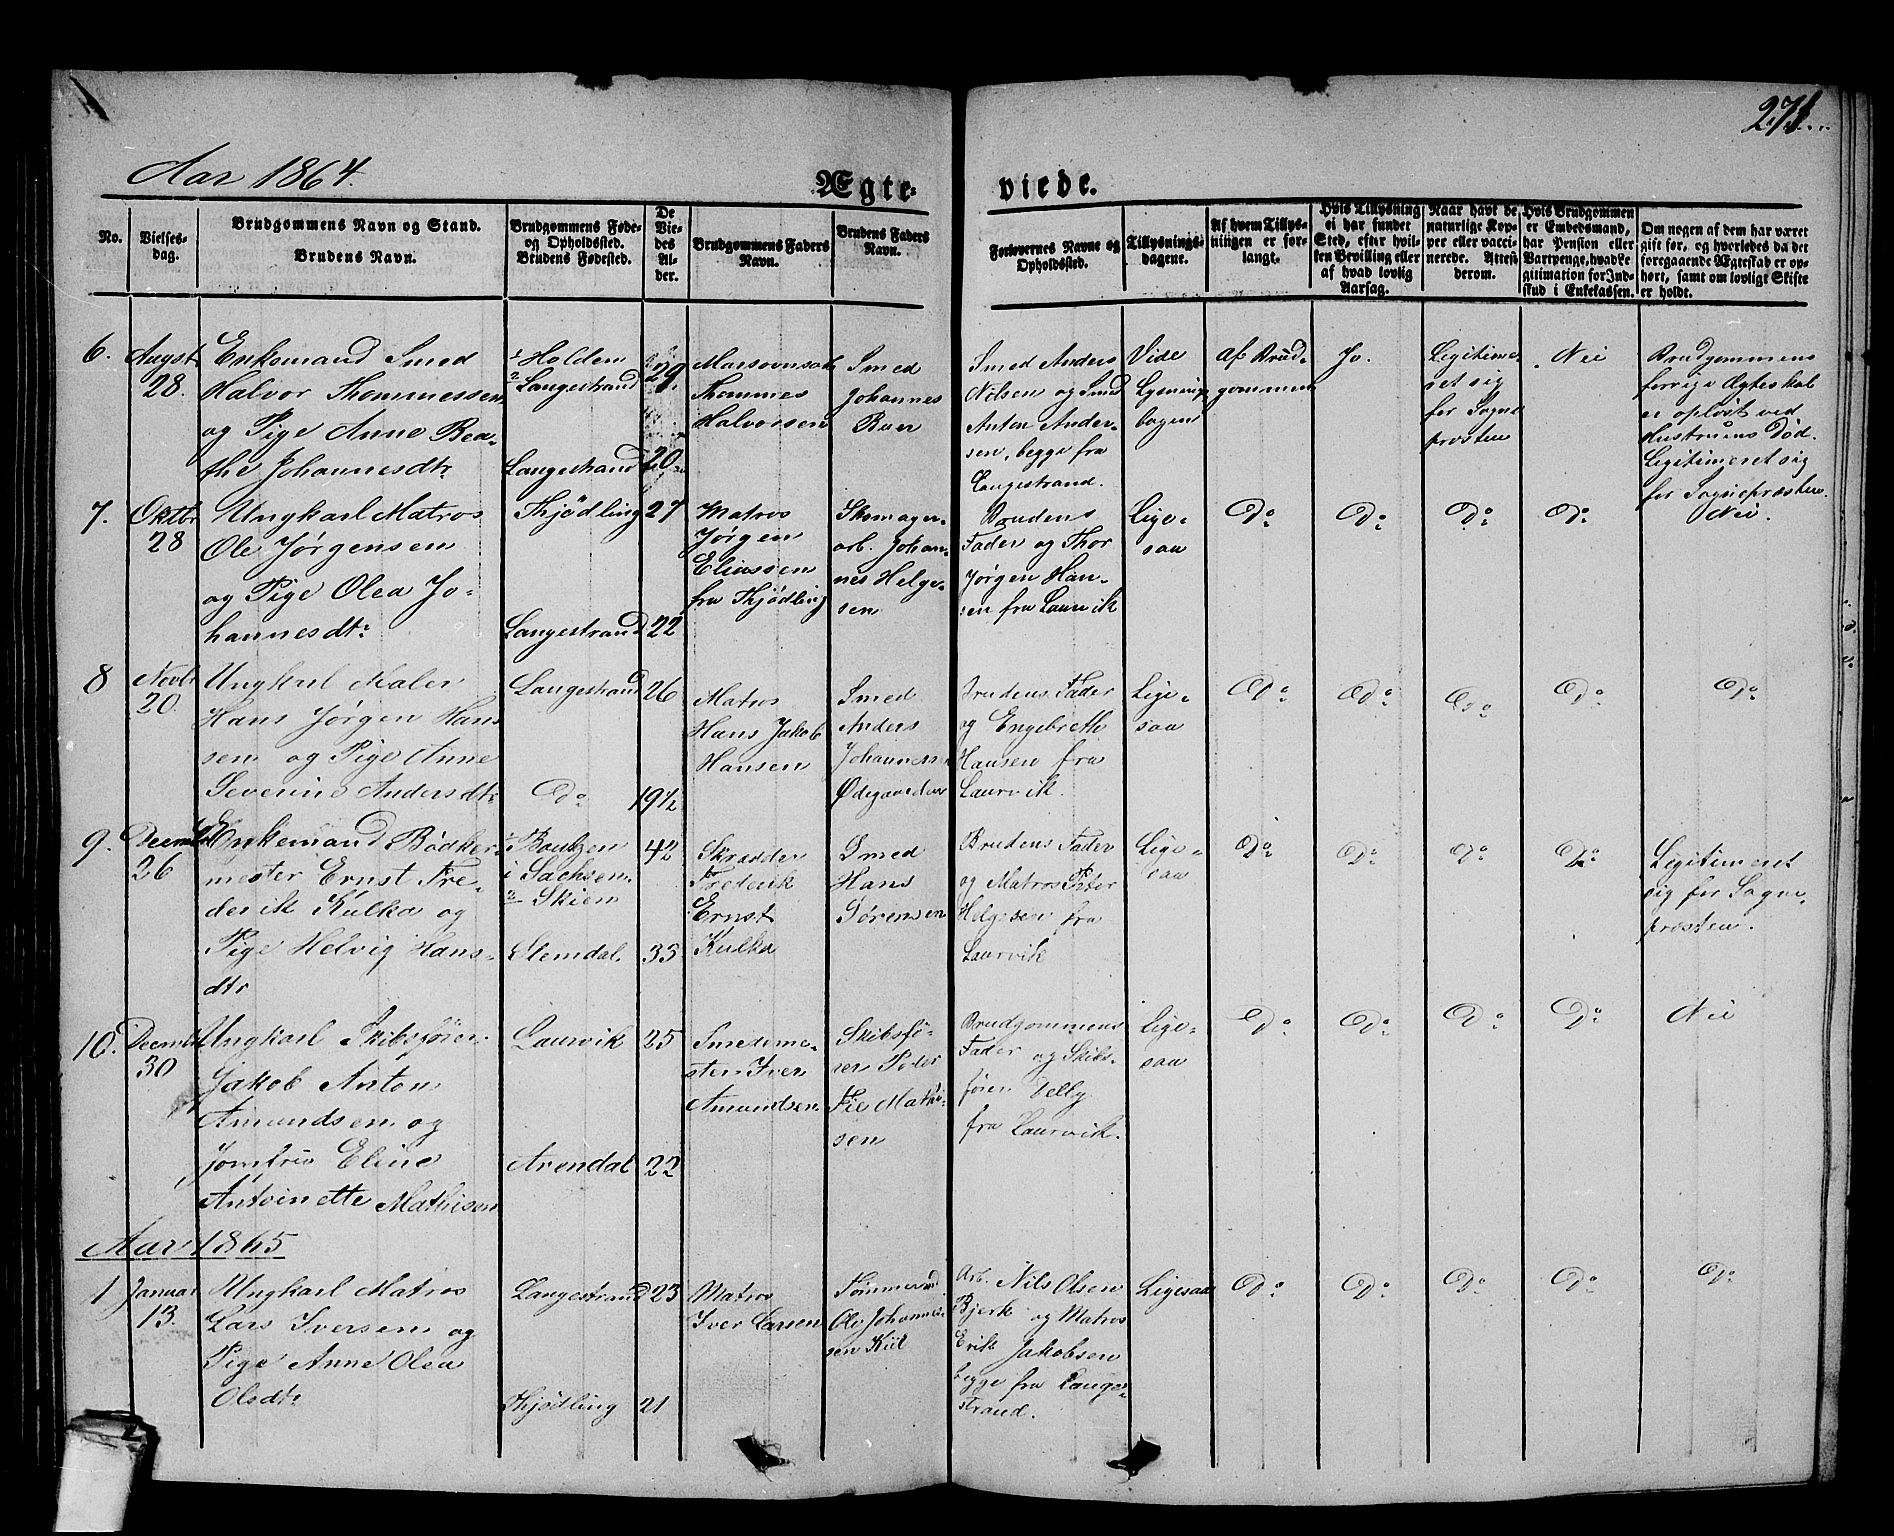 271
Aar 1864.
Ægte=
viede.
No.
Vielses-
dag.
Brudgommens Navn og Stand.
Brudens Navn.
Brudgommens Føde-
og Opholdssted.
Brudens Fødested.
De
Vie-
des
Al-
der.
Brudgommens Faders
Navn.
Brudens Faders
Navn.
Forlovernes Navne og
Opholdssted.
Tillysnings-
dagene.
Af hvem Tillys-
ningen er for-
langt.
Hvis Tillysning
ei har fundet
Sted, efter hvil-
ken Bevilling eller
af hvad lovlig
Aarsag.
Naar havt de
naturlige Kop-
per eller vacci-
nerede. Attest
derom.
Hvis Brudgommen
er Embedsmand,
har Pension eller
Vartpenge, hvad Le-
gitimation for Ind-
skud i Enkekassen.
Om nogen af dem har været
gift før, og hvorledes da det
foregaaende Ægteskab er op-
hørt, samt om lovligt Skifte
er holdt.
6.
August
28.
Enkemand Smed
Halvor Thommessen
og Pige Anne Bea-
the Johannesdtr
1 Holden
2 Langestrand
Langestrand
29
20
Thommes
Halvorsen
Smed
Johannes
Smed Anders
Nilsen og Smed
Anton Ander-
sen, begge fra
Langestrand.
Vide
Lysnings
bogen
Af Brud-
gommen
Jo.
Legitime-
ret sig
for Sogne
præsten
Nei
Brudgommens
forrige Ægteskab
er opløst ved
Hustruens Død.
Legitimeret sig
for Sognepræsten.
7.
Oktbr
28
Ungkarl Matros
Ole Jørgensen
og Pige Olea Jo-
hannesdtr
Thjødling
Langestrand
27
22
Matros
Jørgen
Eliassen
fra Thjødling
Skomager-
arb. Johan-
nes Helge-
sen
Brudens
Fader og Thor
Jørgen Han-
sen fra Laurvik
Lige-
saa
Do
Do
Do
Do
Nei.
8
Novbr
20.
Ungkarl Maler
Hans Jørgen Han-
sen og Pige Anne
Severine Andersdtr
Langestrand
Do
26
19 1/2
Matros
Hans Jakob
Hansen
Smed
Anders
Johannessen
Ødegaarden
Brudens Fader
og Engebreth
Hansen fra
Laurvik.
Lige-
saa
Do
Do
Do
Do
Do
9.
Decembr
26
Enkemand Bødker-
mester Ernst Fre-
derik Kulka og
Pige Helvig Hans-
dtr
1 Boutzen
i Sachsen.
2 Skien
Slemdal.
42
33
Skrædder
Frederik
Ernst
Kulka
Smed
Hans
Sørensen
Brudens Fader
og Matros Peter
Helgesen fra
Laurvik
Lige-
saa
Do
Do
Do
Do
Legitimeret
sig for Sogne-
præsten.
10.
Decembr
30
Ungkarl Skibsfører
Jakob Anton
Amundsen og
Jomfru Eline
Antoinette Mathisen
Laurvik
Arendal
25
22
Smedeme-
ster Iver
Amundsen
Skibsfø-
rer Peder
Mathi-
sen
Brudgommens
Fader og Skibs-
fører Velby
fra Laurvik.
Lige-
saa
Do
Do
Do
Do
Nei
Aar 1865
1
Januar
13.
Ungkarl Matros
Lars Iversen og
Pige Anne Olea
Olsdtr
Langestrand
Thjødling
23
21
Matros
Iver Larsen
Tømmermd
Ole Johanne-
sen Kiil
Arb. Nils Olsen
Bjerk og Matros
Erik Jakobsen
begge fra Lange-
strand.
Ligesaa
Do
Do
Do
Do
Do
2